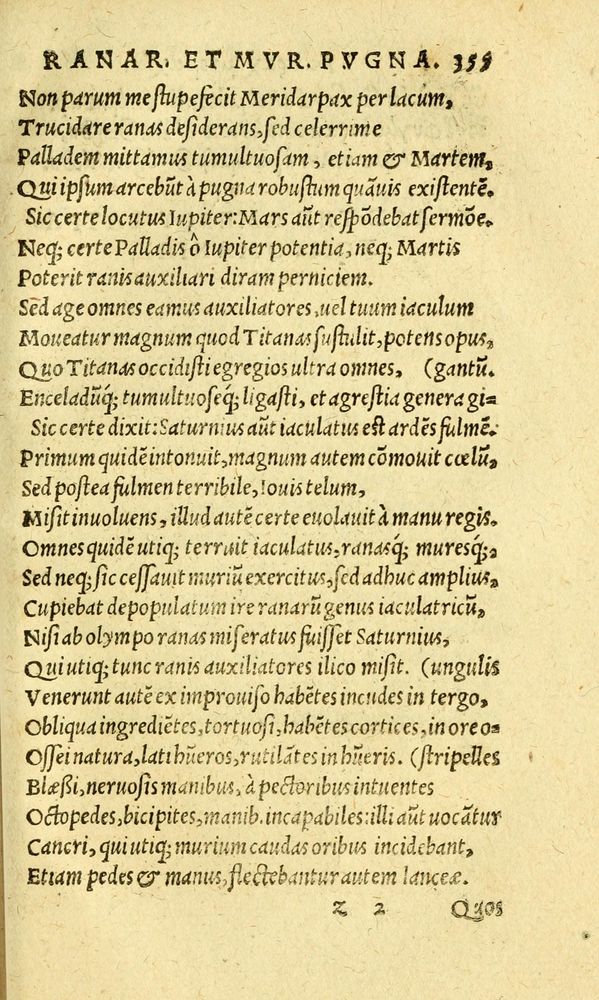 RANAR. ET MVR. PVGNA. 355
Non parum me stupefecit Meridarpax per lacum,
Trucidare ranas desiderans, sed celerrime
Palladem mittamus tumultuosam, etiam & Martem,
Qui ipsum arcebũt à pugna robustum quãuis existentẽ.
Sic certe locutus Iupiter: Mars aũt respõdebat sermõe.
Neq; certe Palladis ô Iupiter potentia, neq; Martis
Poterit ranis auxiliari diram perniciem.
Sed age omnes eamus auxiliatores, uel tuum iaculum
Moueatur magnum quod Titanas sustulit, potens opus,
Quo Titanas occidisti egregios ultra omnes, (gantũ.
Enceladũq́; tumultuoseq́; ligasti, et agrestia genera gi=
Sic certe dixit: Saturnius aũt iaculatus est ardẽs fulmẽ.
Primum quidẽ intonuit, magnum autem cõmouit cœlũ,
Sed postea fulmen terribile, Iouis telum,
Misit inuoluens, illud autẽ certe euolauit à manu regis.
Omnes quidẽ utiq; terruit iaculatus, ranasq́; muresq́;,
Sed neq; sic cessauit muriũ exercitus, sed adhuc amplius,
Cupiebat depopulatum ire ranarũ genus iaculatricũ,
Nisi ab olympo ranas miseratus fuisset Saturnius,
Qui utiq; tunc ranis auxiliatores ilico misit. (ungulis
Venerunt autẽ ex improuiso habẽtes incudes in tergo,
Obliqua ingrediẽtes, tortuosi, habẽtes cortices, in ore o=
Ossei natura, lati hũeros, rutilãtes in hũeris. (stripelles
Blæßi, neruosis manibus, à pectoribus intuentes
Octopedes, bicipites, manib. incapabiles: illi aũt uocãtur
Cancri, qui utiq; murium caudas oribus incidebant,
Etiam pedes & manus, flectebantur autem lanceæ.
Z 2 Quos